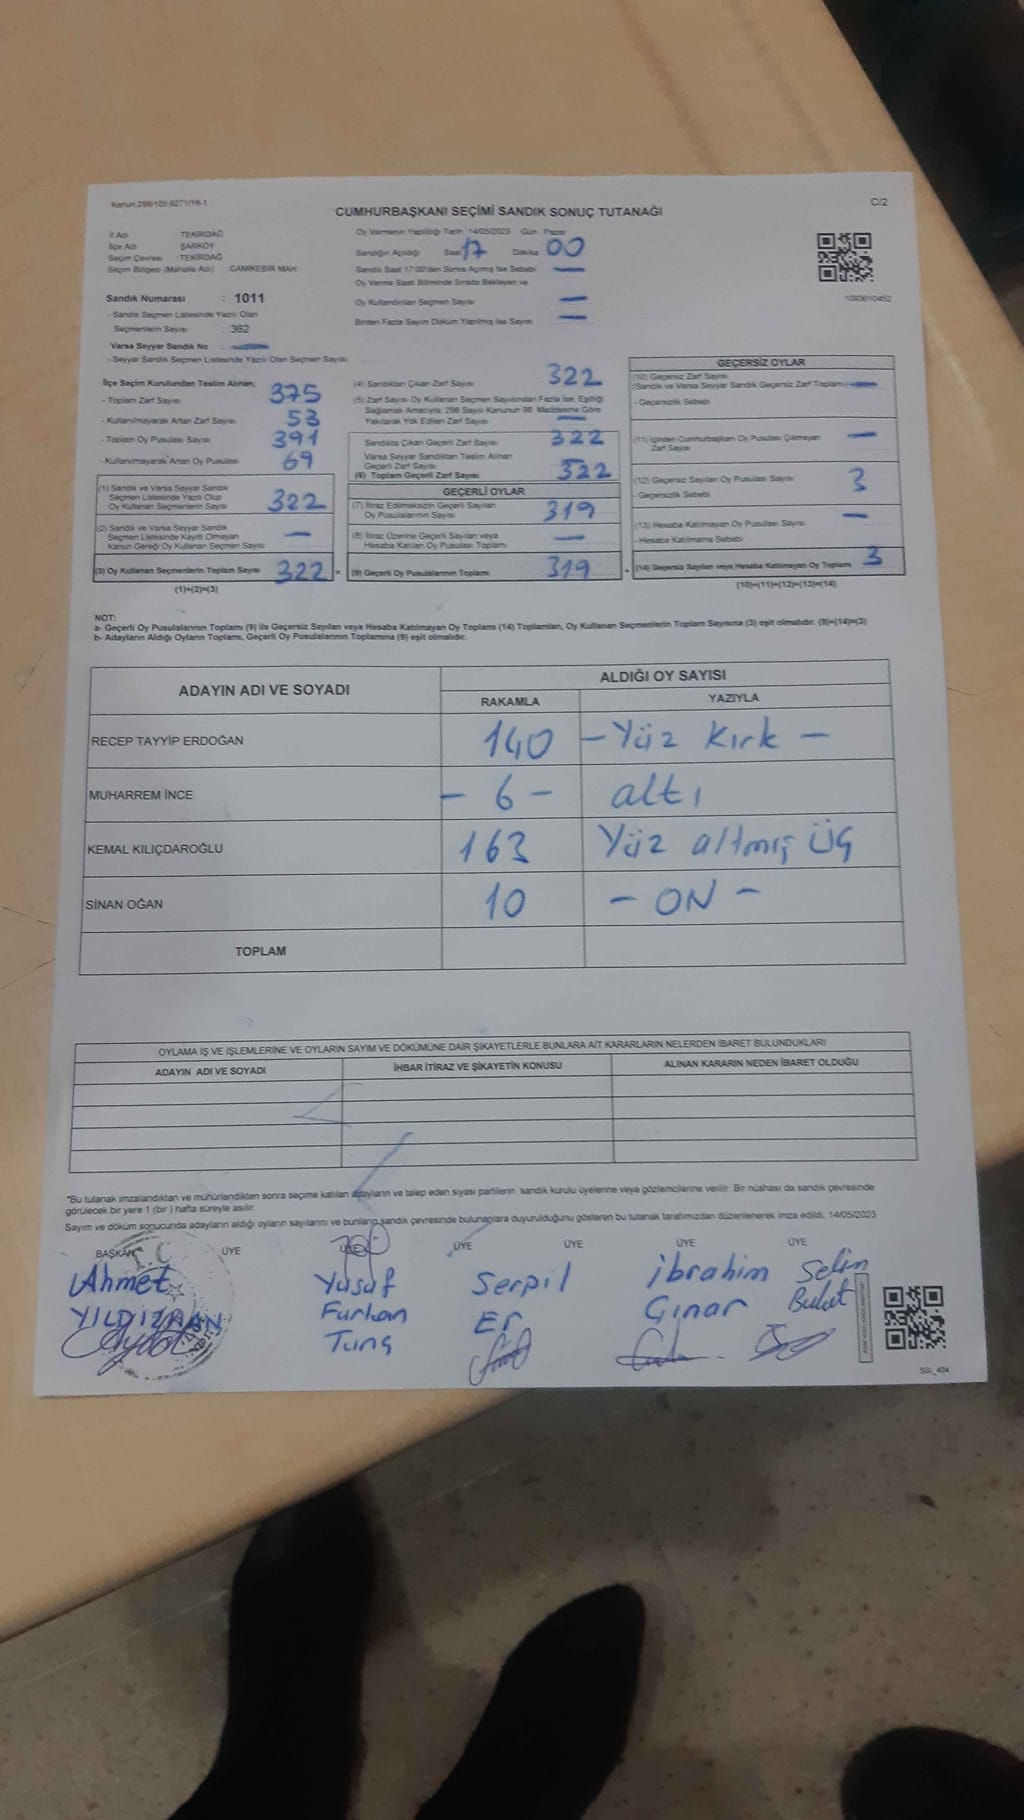 Kanun 298/105 6271/18-1
C/2
CUMHURBAŞKANI SEÇİMİ SANDIK SONUÇ TUTANAĞI
İl Adı TEKİRDAĞ
İlçe Adı ŞARKÖY
Seçim Çevresi : TEKİRDAĞ
Seçim Bölgesi (Mahalle Adı) CAMİKEBİR MAH
Sandık Numarası : 1011
- Sandık Seçmen Listesinde Yazılı Olan
Seçmenlerin Sayısı : 362
Varsa Seyyar Sandık No : —
- Seyyar Sandık Seçmen Listesinde Yazılı Olan Seçmen Sayısı
Oy Vermenin Yapıldığı Tarih 14/05/2023 Gün Pazar
Sandığın Açıldığı Saat 17 Dakika 00
Sandık Saat 17:00'den Sonra Açılmış İse Sebebi —
Oy Verme Saati Bitiminde Sırada Bekleyen ve
Oy Kullandırılan Seçmen Sayısı —
Birden Fazla Sayım Döküm Yapılmış İse Sayısı —
1093610452
İlçe Seçim Kurulundan Teslim Alınan;
- Toplam Zarf Sayısı 375
- Kullanılmayarak Artan Zarf Sayısı 53
- Toplam Oy Pusulası Sayısı 391
- Kullanılmayarak Artan Oy Pusulası 69
(1) Sandık ve Varsa Seyyar Sandık
Seçmen Listesinde Yazılı Olup
Oy Kullanan Seçmenlerin Sayısı 322
(2) Sandık ve Varsa Seyyar Sandık
Seçmen Listesinde Kayıtlı Olmayan
Kanun Gereği Oy Kullanan Seçmen Sayısı —
(3) Oy Kullanan Seçmenlerin Toplam Sayısı 322 =
(1)+(2)=(3)
(4) Sandıktan Çıkan Zarf Sayısı 322
(5) Zarf Sayısı Oy Kullanan Seçmen Sayısından Fazla İse, Eşitliği
Sağlamak Amacıyla, 298 Sayılı Kanunun 98. Maddesine Göre
Yakılarak Yok Edilen Zarf Sayısı —
Sandıkta Çıkan Geçerli Zarf Sayısı 322
Varsa Seyyar Sandıktan Teslim Alınan
Geçerli Zarf Sayısı
(6) Toplam Geçerli Zarf Sayısı 322
GEÇERLİ OYLAR
(7) İtiraz Edilmeksizin Geçerli Sayılan
Oy Pusulalarının Sayısı 319
(8) İtiraz Üzerine Geçerli Sayılan veya
Hesaba Katılan Oy Pusulası Toplamı —
(9) Geçerli Oy Pusulalarının Toplamı 319 +
GEÇERSİZ OYLAR
(10) Geçersiz Zarf Sayısı
(Sandık ve Varsa Seyyar Sandık Geçersiz Zarf Toplamı) —
- Geçersizlik Sebebi
(11) İçinden Cumhurbaşkanı Oy Pusulası Çıkmayan
Zarf Sayısı —
(12) Geçersiz Sayılan Oy Pusulası Sayısı 3
- Geçersizlik Sebebi
(13) Hesaba Katılmayan Oy Pusulası Sayısı —
- Hesaba Katılmama Sebebi
(14) Geçersiz Sayılan veya Hesaba Katılmayan Oy Toplamı 3
(10)+(11)+(12)+(13)=(14)
NOT:
a- Geçerli Oy Pusulaları Toplamı (9) ile Geçersiz Sayılan veya Hesaba Katılmayan Oy Toplamı (14) Toplamları, Oy Kullanan Seçmenlerin Toplam Sayısına (3) eşit olmalıdır. (9)+(14)=(3)
b- Adayların Aldığı Oyların Toplamı, Geçerli Oy Pusulalarının Toplamına (9) eşit olmalıdır.
ADAYIN ADI VE SOYADI ALDIĞI OY SAYISI
RAKAMLA YAZIYLA
RECEP TAYYİP ERDOĞAN 140 - Yüz Kırk -
MUHARREM İNCE - 6 - altı
KEMAL KILIÇDAROĞLU 163 Yüz altmış Üç
SİNAN OĞAN 10 - ON -
TOPLAM
OYLAMA İŞ VE İŞLEMLERİNE VE OYLARIN SAYIM VE DÖKÜMÜNE DAİR ŞİKAYETLERLE BUNLARA AİT KARARLARIN NELERDEN İBARET BULUNDUKLARI
ADAYIN ADI VE SOYADI İHBAR İTİRAZ VE ŞİKAYETİN KONUSU ALINAN KARARIN NEDEN İBARET OLDUĞU
*Bu tutanak imzalandıktan ve mühürlendikten sonra seçime katılan adayların ve talep eden siyasi partilerin sandık kurulu üyelerine veya gözlemcilerine verilir. Bir nüshası da sandık çevresinde
görülecek bir yere 1 (bir) hafta süreyle asılır.
Sayım ve döküm sonucunda adayların aldığı oyların sayılarını ve bunların sandık çevresinde bulunanlara duyurulduğunu gösteren bu tutanak tarafımızdan düzenlenerek imza edildi. 14/05/2023
BAŞKAN ÜYE ÜYE ÜYE ÜYE ÜYE ÜYE
Ahmet Yusuf Serpil İbrahim Selin
Furkan Er Çınar Bulut
Tunç
SSI_404